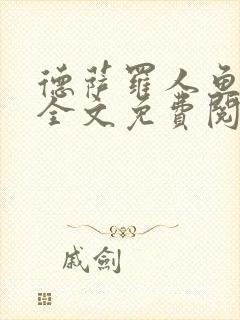 德薩羅人魚
全文免費閱
戚劍